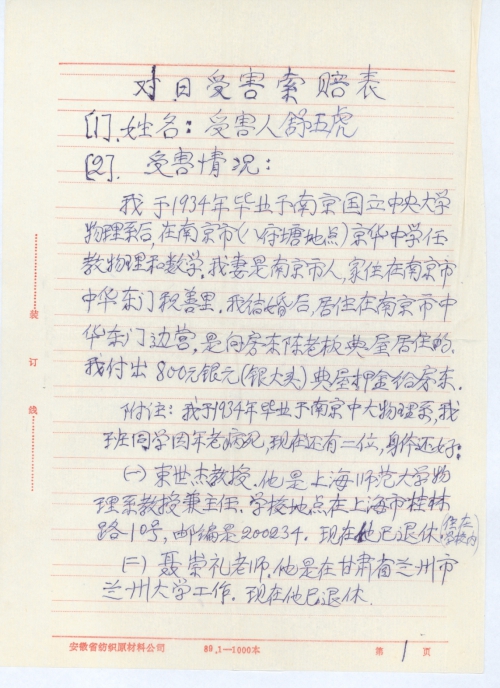 对日受害索赔表
[1].姓名：受害人舒五虎
[2].受害情况：
我于1934年毕业于南京国立中央大学
物理系后，在南京市(八府塘地点)京华中学任
教物理和数学。我妻是南京市人，家住在南京市
中华东门积善里。我结婚后，居住在南京市中
华东门边营，是向房东陈老板典屋居住的。
我付出800元银元(银大头)典屋押金给房东。
附注：我于1934年毕业于南京中大物理系，我
班同学因年老病死，现在还有二位，身份还好：
(一)束世杰教授。他是上海师范大学物
理系教授兼主任。学校地点在上海市桂林
路10号，邮编是200234。现在他已退休。(住在
学校内)
(二)聂崇礼老师。他是在甘肃省兰州市
兰州大学工作。现在他已退休。
装
订
线
安徽省纺织原材料公司 89.1—1000本 第1页